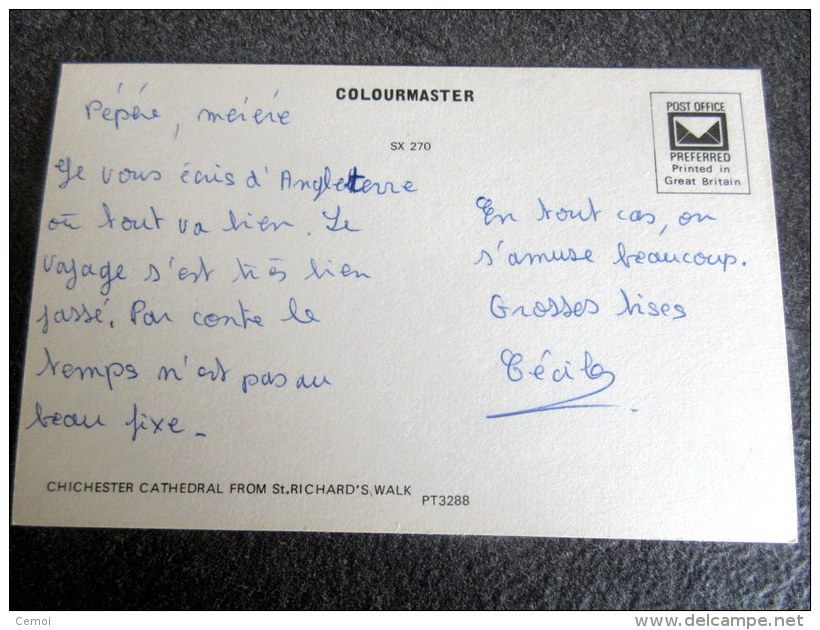 COLOURMASTER
SX 270
POST OFFICE
PREFERRED
Printed in
Great Britain
Pépère, mémère
Je vous écris d'Angleterre
où tout va bien. Le
voyage s'est très bien
passé. Par contre le
temps n'est pas au
beau fixe.
En tout cas, on
s'amuse beaucoup.
Grosses bises
Cécile
CHICHESTER CATHEDRAL FROM St. RICHARD'S WALK
PT3288
Cemoi
delcampe.net